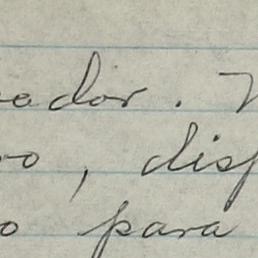 ador.
o, disp
o para